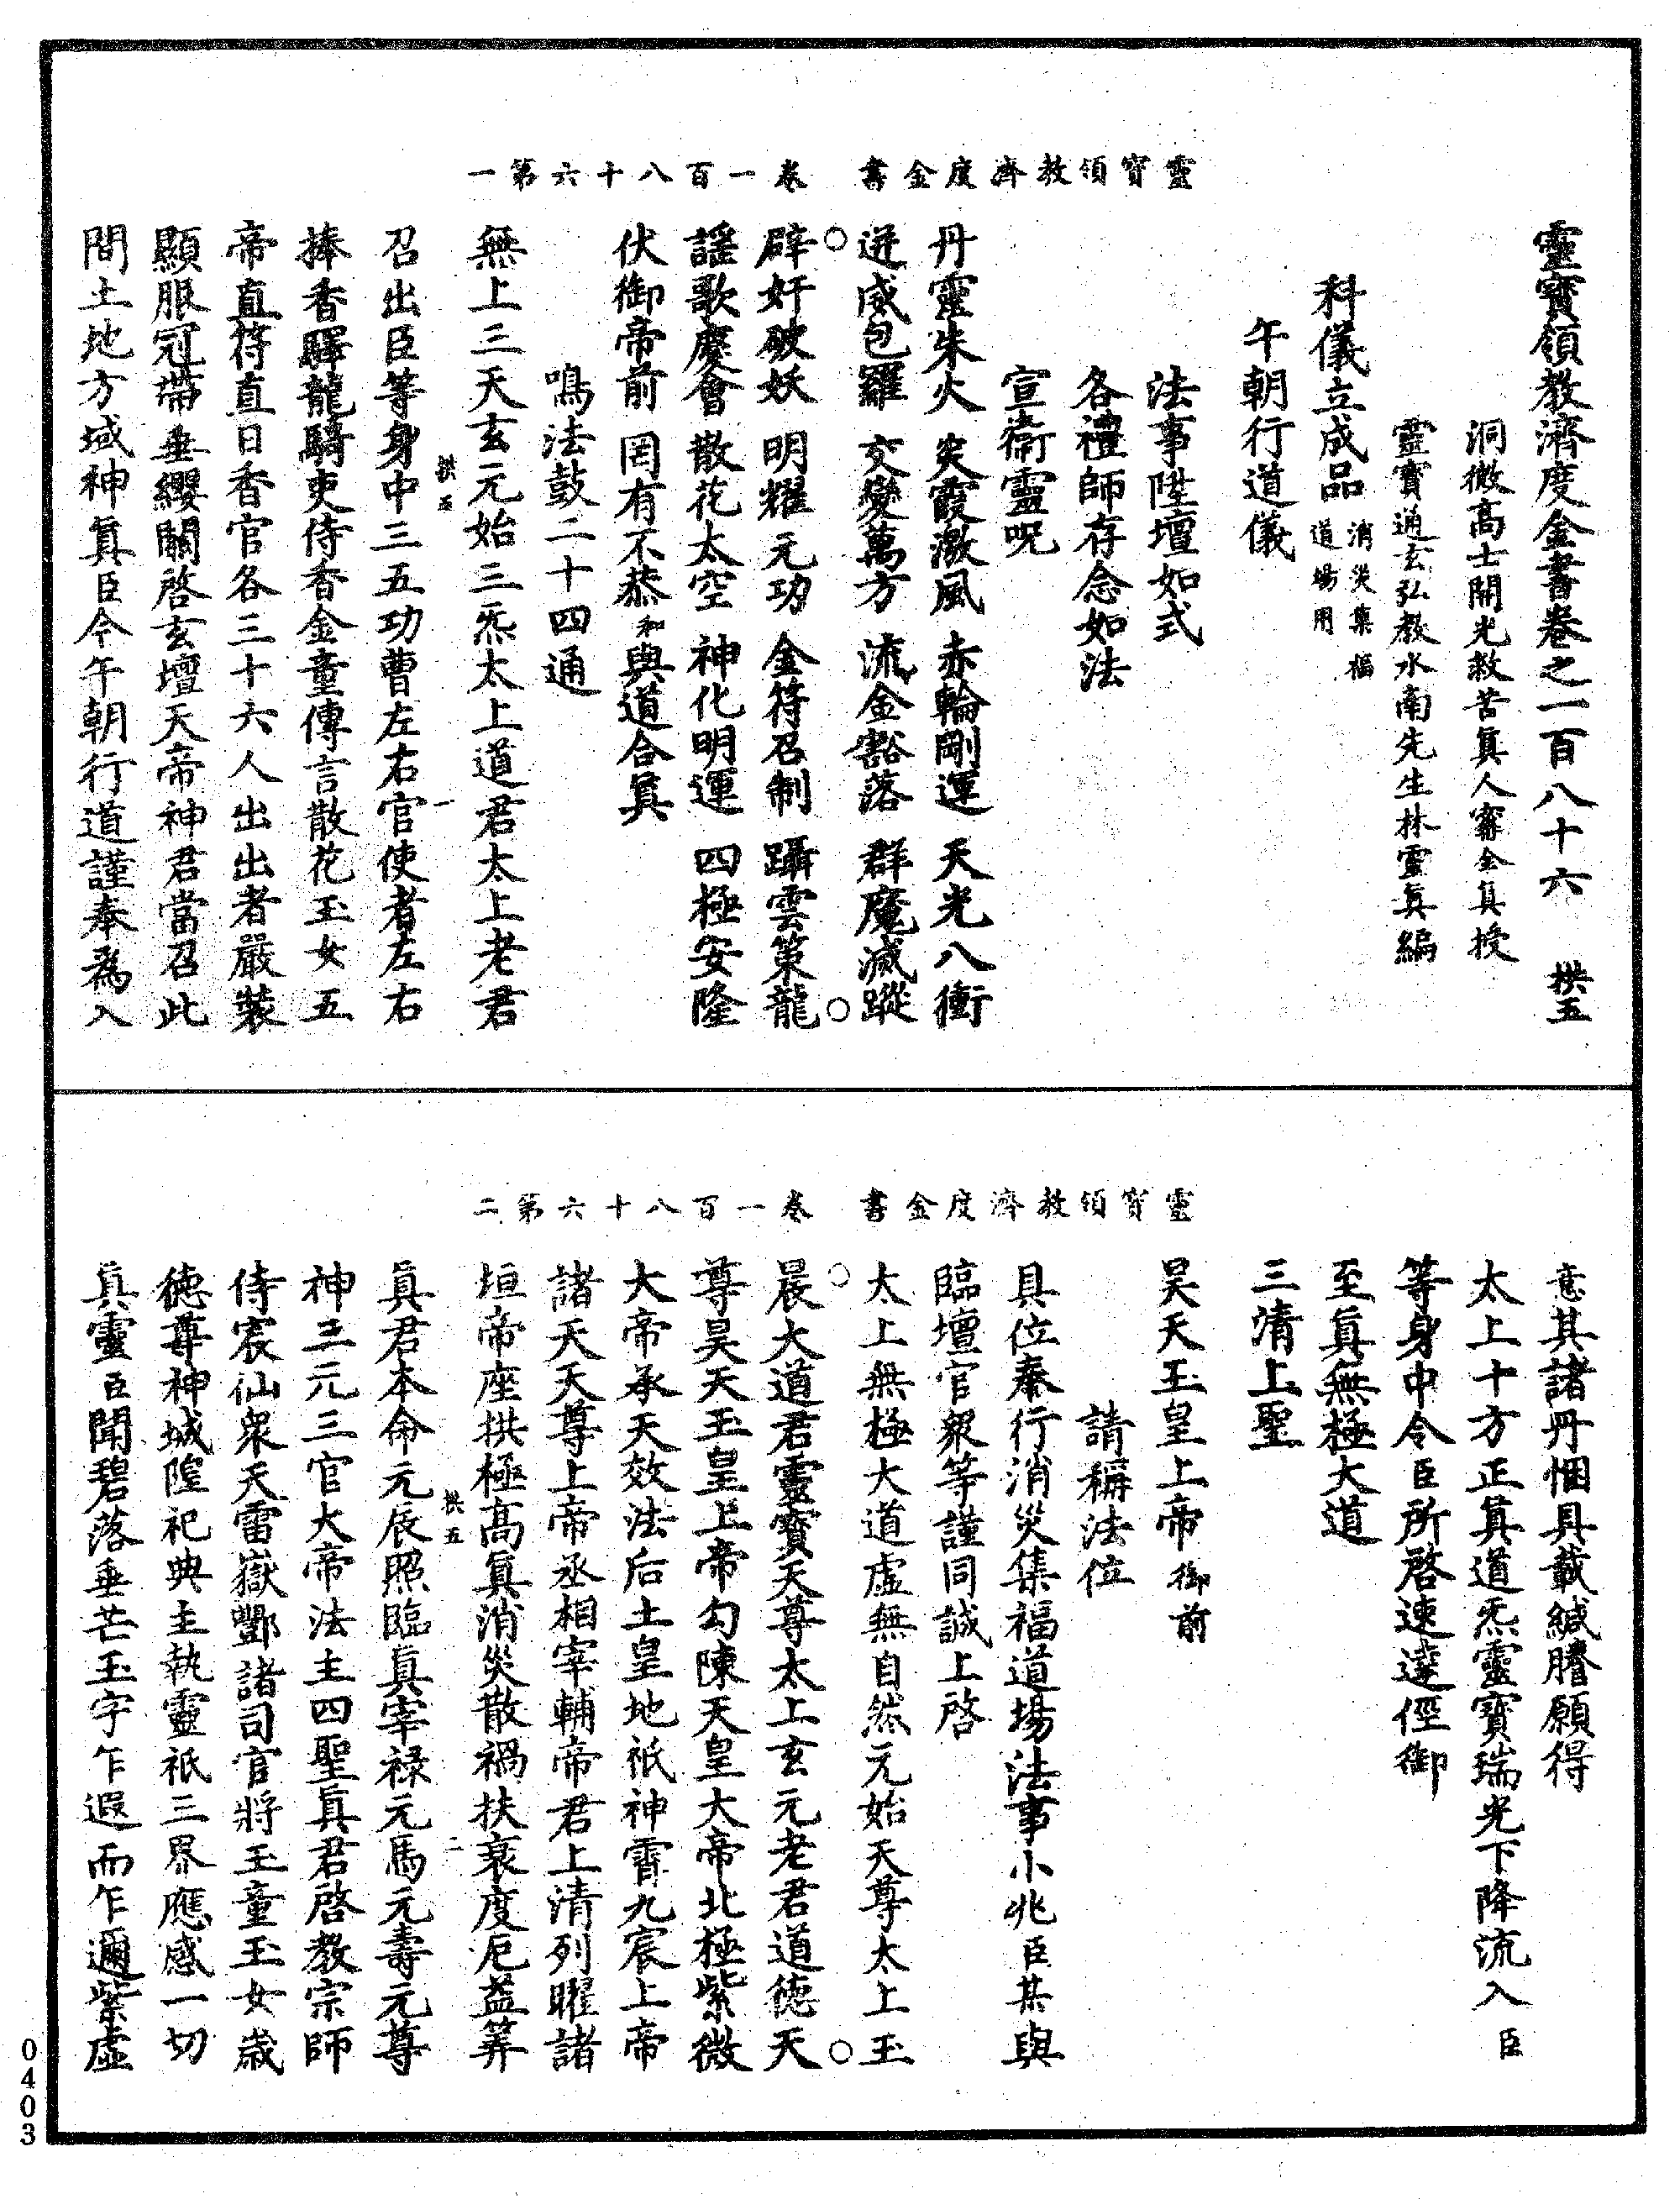 靈寶領教濟度金書　卷一百八十六第一
靈寶領教濟度金書卷之一百八十六　拱五
洞微高士開光救苦眞人甯全眞授
靈寶通玄弘教水南先生林靈眞編
科儀立成品 消災集福道場用
午朝行道儀
法事陞壇如式
各禮師存念如法
宣衞靈呪
丹靈朱火　炎霞激風　赤輪剛運　天光八衝
迸威包羅　交變萬方　流金豁落　群魔滅蹤
辟奸破妖　明耀元功　金符召制　躡雲策龍
謠歌慶會　散花太空　神化明運　四極安隆
伏御帝前　罔有不恭 和 與道合眞
鳴法鼓二十四通
無上三天玄元始三炁太上道君太上老君
拱五　一
召出臣等身中三五功曹左右官使者左右
捧香驛龍騎吏侍香金童傳言散花玉女五
帝直符直日香官各三十六人出出者嚴裝
顯服冠帶垂纓關啓玄壇天帝神君當召此
間土地方域神眞臣今午朝行道謹奉爲入
靈寶領教濟度金書　卷一百八十六第二
意其諸丹悃具載緘謄願得
太上十方正眞道炁靈寶瑞光下降流入臣
等身中令臣所啓速達徑御
至眞無極大道
三清上聖
昊天玉皇上帝御前
請稱法位
具位奉行消災集福道場法事小兆臣某與
臨壇官衆等謹同誠上啓
太上無極大道虛無自然元始天尊太上玉
晨大道君靈寶天尊太上玄元老君道德天
尊昊天玉皇上帝勾陳天皇大帝北極紫微
大帝承天效法后土皇地祇神霄九宸上帝
諸天天尊上帝丞相宰輔帝君上清列曜諸
垣帝座拱極高眞消災散禍扶衰度厄益筭
拱五　二
眞君本命元辰照臨眞宰祿元馬元壽元尊
神三元三官大帝法主四聖眞君啓教宗師
侍宸仙衆天雷嶽酆諸司官將玉童玉女歲
德尊神城隍祀典主執靈祇三界應感一切
眞靈臣聞碧落垂芒玉字乍遐而乍邇紫虛
0403